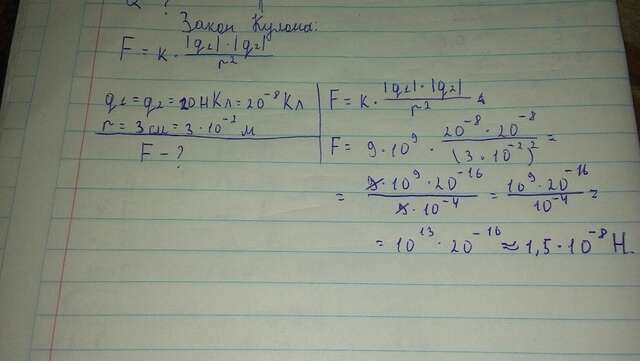 Закон Кулона:
F = k · |q₁|·|q₂| / r²
q₁ = q₂ = 20 нКл = 20⁻⁸ Кл
r = 3 см = 3 · 10⁻² м
F – ?
F = k · |q₁|·|q₂| / r²
F = 9 · 10⁹ · 20⁻⁸ · 20⁻⁸ / (3 · 10⁻²)² =
= 9 · 10⁹ · 20⁻¹⁶ / 9 · 10⁻⁴ = 10⁹ · 20⁻¹⁶ / 10⁻⁴ =
= 10¹³ · 20⁻¹⁶ ≈ 1,5 · 10⁻⁸ Н.